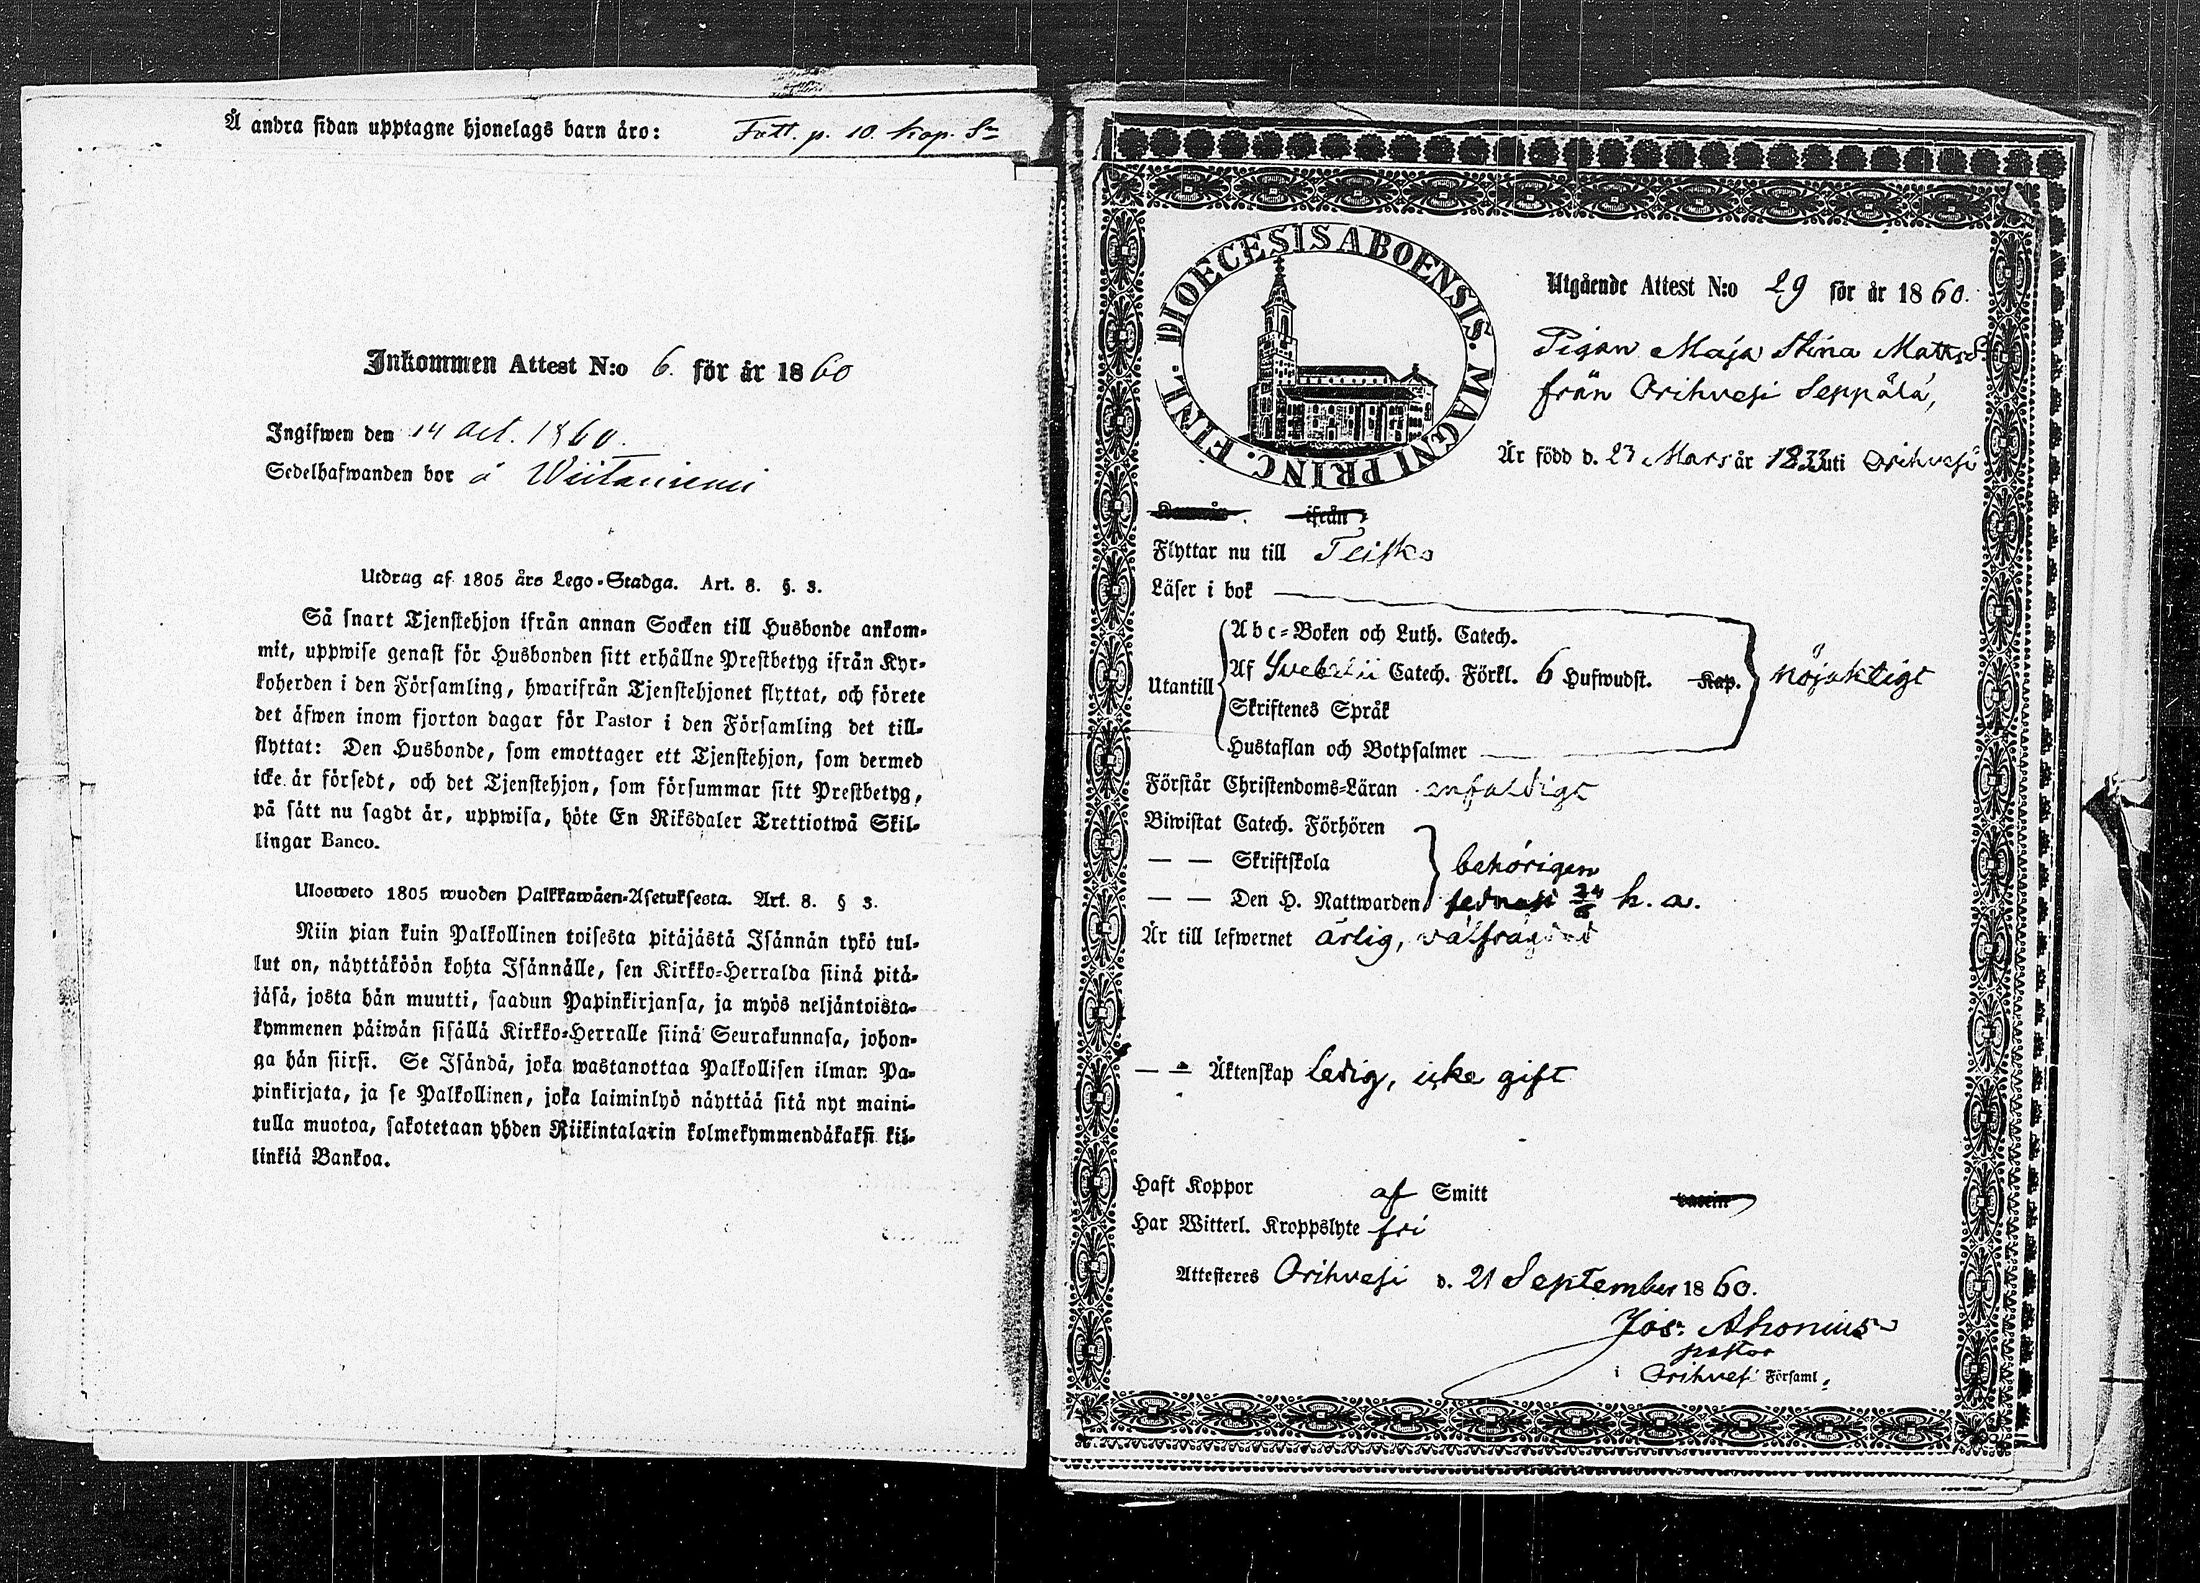 Å andra sidan upptagne hjonelags barn äro: Fatt. p. 10. kop. Sr
Inkommen Attest N:o 6. för år 1860
Ingifwen den 14 Oct. 1860.
Sedelhafwanden bor å Wiitaniemi
Utdrag af 1805 års Lego-Stadga. Art. 8. §. 3.
Så snart Tjenstehjon ifrån annan Socken till Husbonde ankom-
mit, uppwise genast för Husbonden sitt erhållne Prestbetyg ifrån Kyr-
koherden i den Församling, hwarifrån Tjenstehjonet flyttat, och förete
det äfwen inom fjorton dagar för Pastor i den Församling det till-
flyttat: Den Husbonde, som emottager ett Tjenstehjon, som dermed
icke är försedt, och det Tjenstehjon, som försummar sitt Prestbetyg,
på sätt nu sagdt är, uppwisa, böte En Riksdaler Trettiotwå Skil-
lingar Banco.
Ulosweto 1805 wuoden Palkkawäen-Asetuksesta. Art. 8. § 3.
Niin pian kuin Palkollinen toisesta pitäjästä Isännän tykö tul-
lut on, näyttäköön kohta Isännälle, sen Kirkko-Herralda siinä pitä-
jäsä, josta hän muutti, saadun Papinkirjansa, ja myös neljäntoista-
kymmenen päiwän sisällä Kirkko-Herralle siinä Seurakunnasa, johon-
ga hän siirsi. Se Isändä, joka wastanottaa Palkollisen ilman Pa-
pinkirjata, ja se Palkollinen, joka laiminlyö näyttää sitä nyt maini-
tulla muotoa, sakotetaan yhden Riikintalarin kolmekymmendäkaksi kil-
linkiä Bankoa.
DIOECESIS ABOENSIS. MAGNI PRINC. FINL.
Utgående Attest N:o 29 för år 1860.
Pigan Maja Stina Mattsd:
från Orihvesi Seppälä,
Är född d. 23 Mars år 1833 uti Orihvesi
ifrån
Flyttar nu till Teisko
Läser i bok
Abc-Boken och Luth. Catech.
Utantill Af Svebelii Catech. Förkl. 6 Hufwudst. Kap. nöjaktigt
Skriftenes Språk
Hustaflan och Botpsalmer
Förstår Christendoms-Läran enfaldigt
Biwistat Catech. Förhören
— — Skriftskola behörigen
— — Den H. Nattwarden sednast 24/6 h. a.
Är till lefwernet ärlig, välfrägdad
— — Äktenskap ledig, icke gift
Haft Koppor af Smitt
Har Witterl. Kroppslyte fri
Attesteres Orihvesi d. 21 September 1860.
Jos. Ahonius
pastor
i Orihvesi Församl.